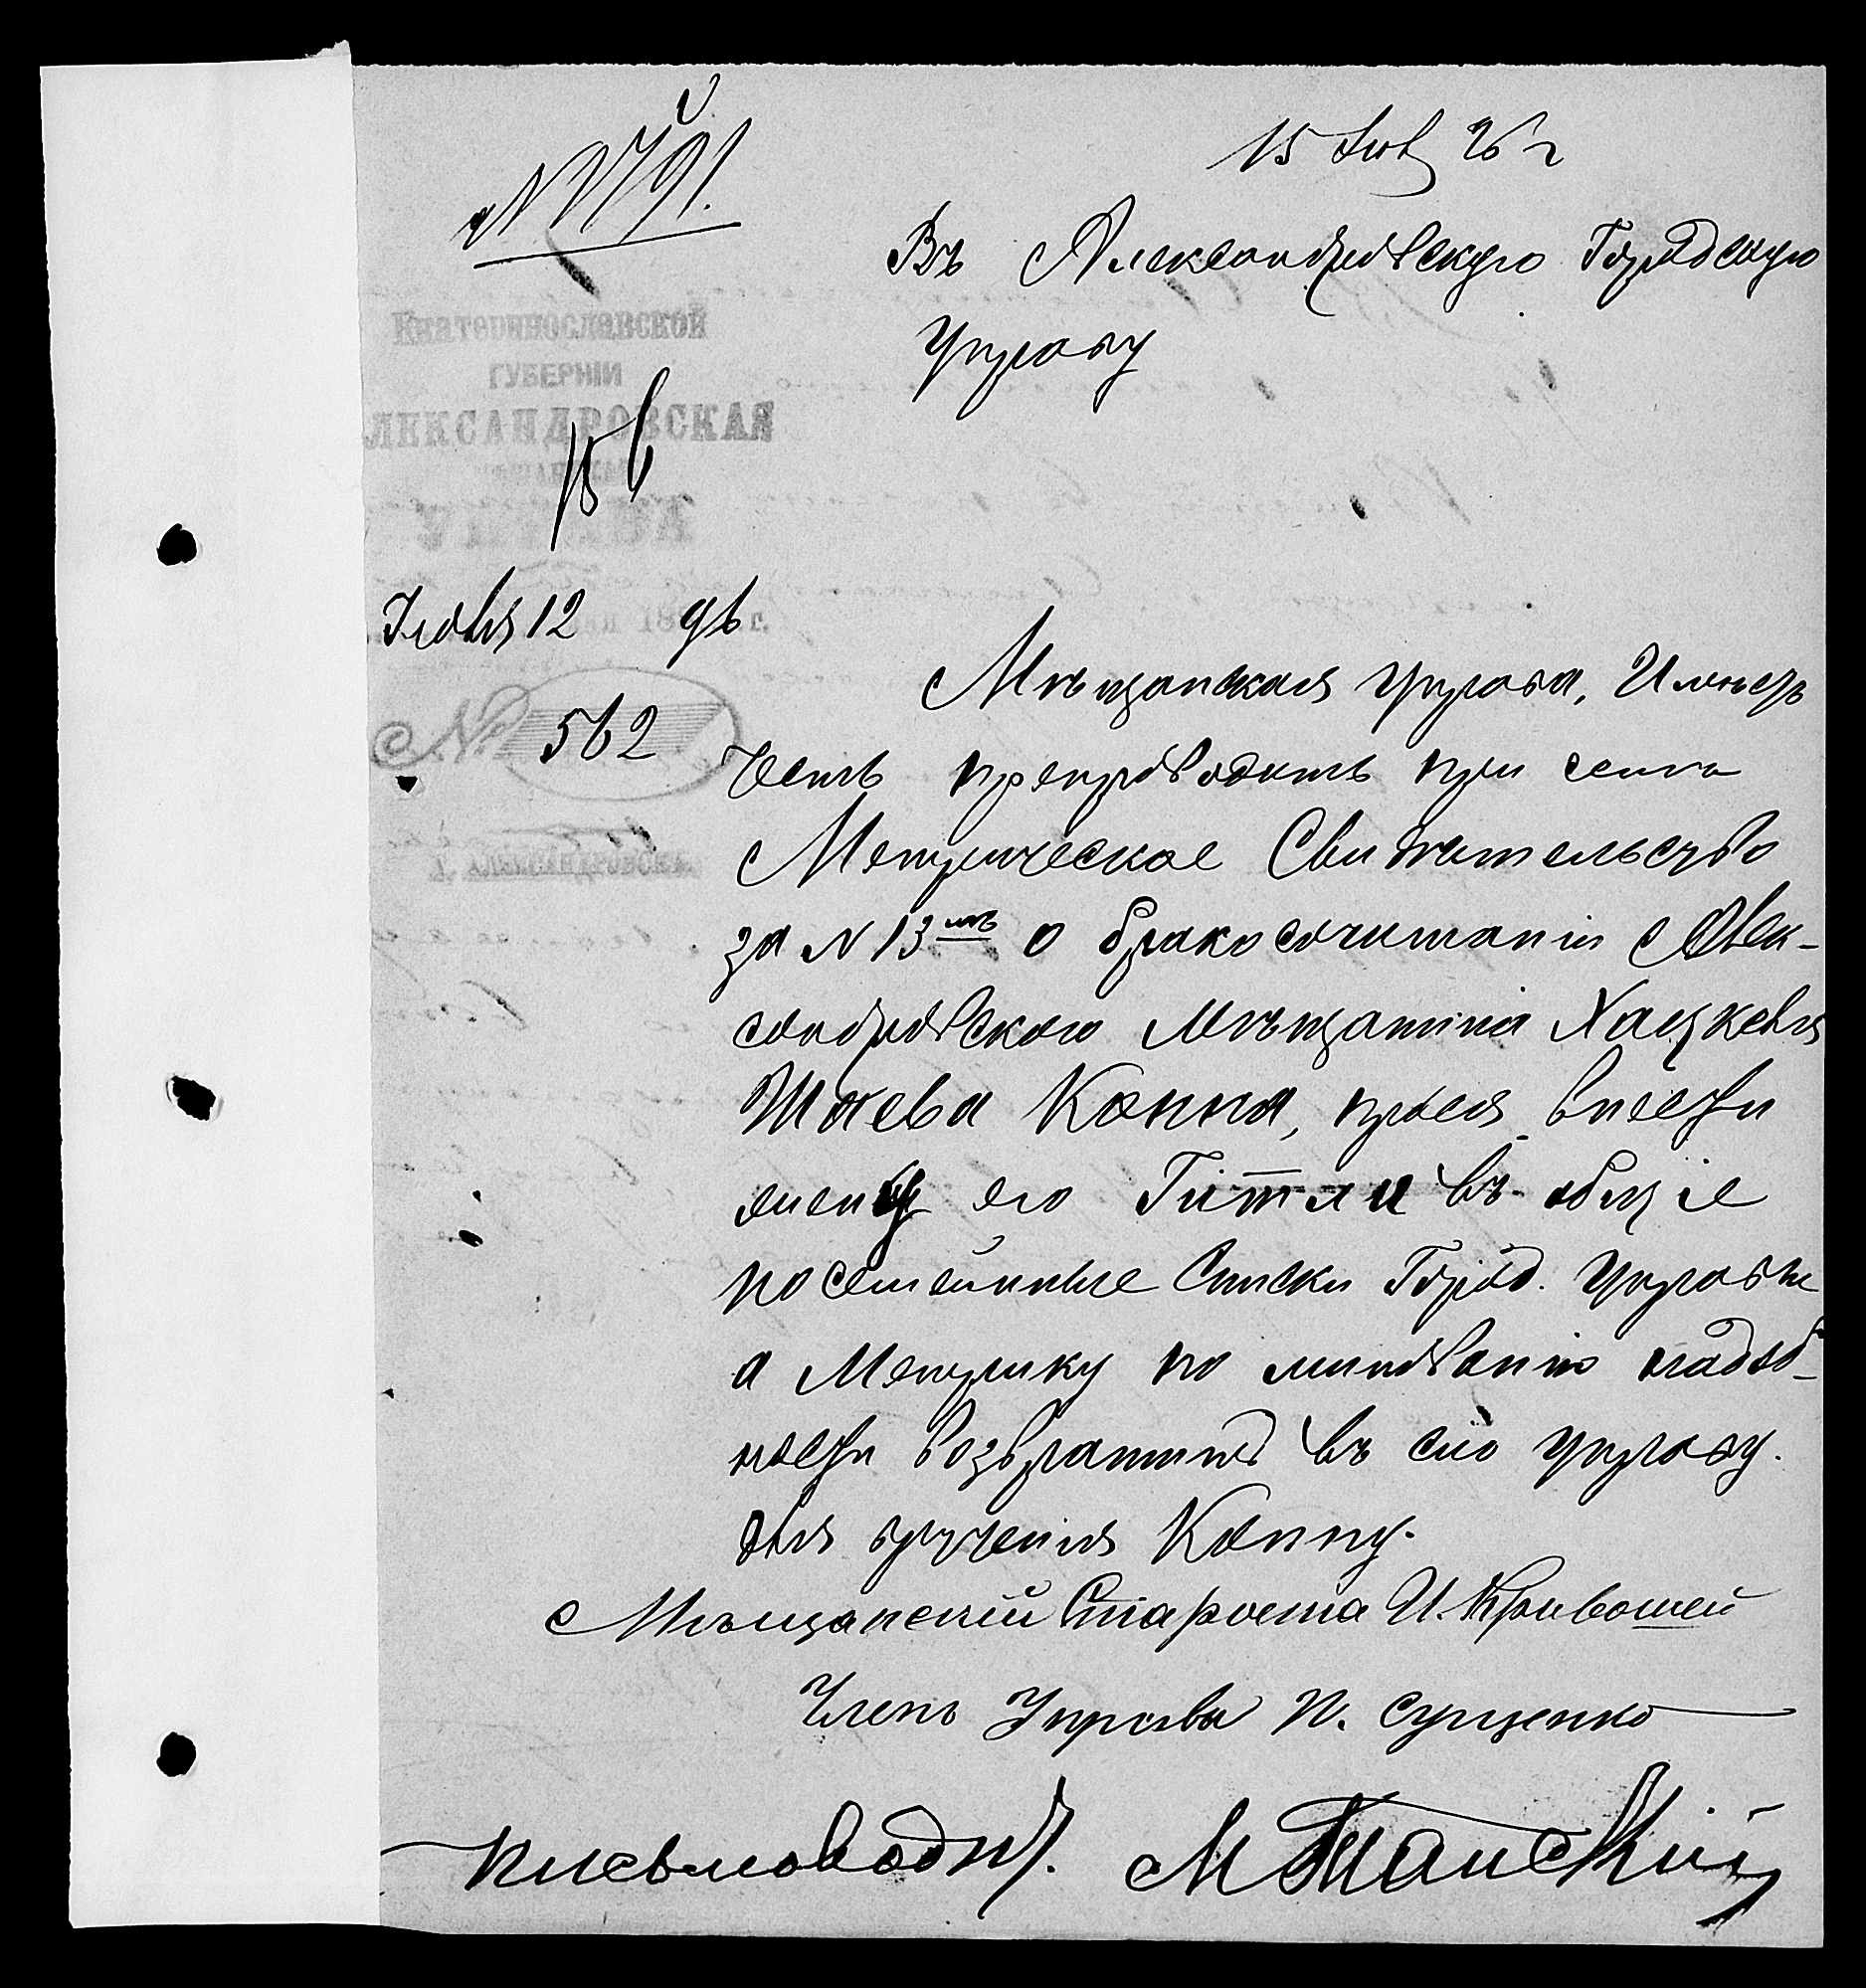 N 1791.
15 Іюня 96 г
Въ Александровскую Городскую
Управу
Екатеринославской
ГУБЕРНІИ
АЛЕКСАНДРОВСКАЯ
МѢЩАНСКАЯ
УПРАВА
Іюня 12 96 г.
№ 562
г. АЛЕКСАНДРОВСКЪ.
Мѣщанская управа, Имѣетъ
честь препроводить при семъ
Метрическое Свидѣтельство
за N 13мъ о бракосочитаніи Алек-
сандровскаго мѣщанина Хацкеля
Шаева Коппа, прося внести
жену его Гитли въ общіе
посемейные Списки Город. Управы
а Метрику по минованіи надоб-
ности возвратить въ сію управу.
для врученія Коппу.
Мѣщанскій Староста И. Кривошей
Членъ Управы П. Сущенко
Письмовод.